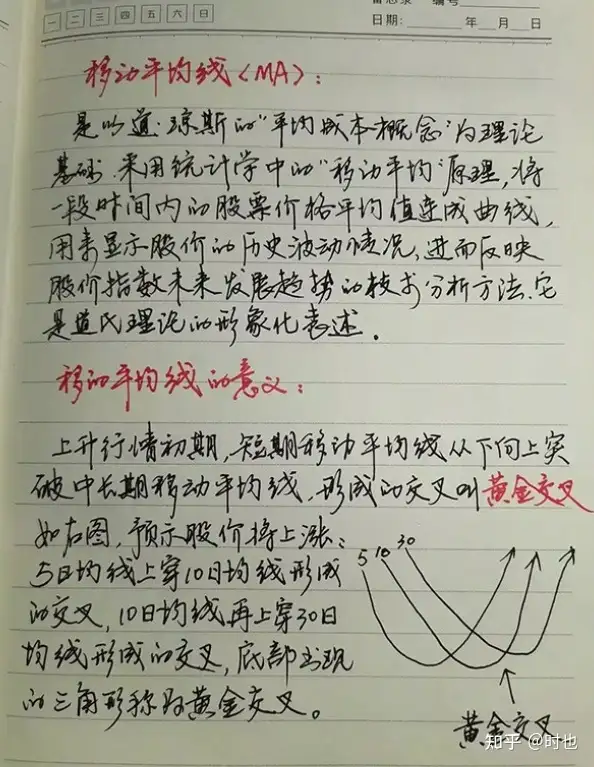 备忘录 编号
一 二 三 四 五 六 日
日期: 年 月 日
移动平均线〈MA〉:
是以道·琼斯的"平均成本概念"为理论
基础,采用统计学中的"移动平均"原理,将
一段时间内的股票价格平均值连成曲线,
用来显示股价的历史波动情况,进而反映
股价指数未来发展趋势的技术分析方法.它
是道氏理论的形象化表述.
移动平均线的意义:
上升行情初期,短期移动平均线从下向上突
破中长期移动平均线,形成的交叉叫黄金交叉
如右图,预示股价将上涨:
5日均线上穿10日均线形成
的交叉,10日均线再上穿30日
均线形成的交叉,底部出现
的三角形称为黄金交叉。
5 10 30
黄金交叉
知乎 @时也